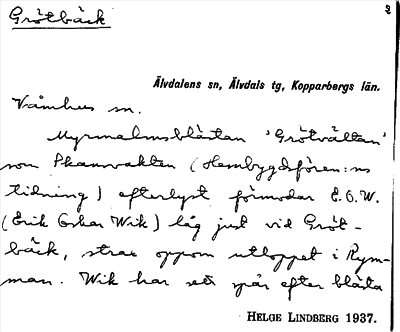 Grötbäck
2
Älvdalens sn, Älvdals tg, Kopparbergs län.
Våmhus sn.
Myrmalmsblästan 'Grötvälten'
som Skansvakten (Hembygdsfören:ns
tidning) efterlyst förmodar E.O.W.
(Erik Oskar Wik) låg just vid Gröt-
bäck, strax ovanom utloppet i Rym-
man. Wik har sett spår efter blästa
HELGE LINDBERG 1937.